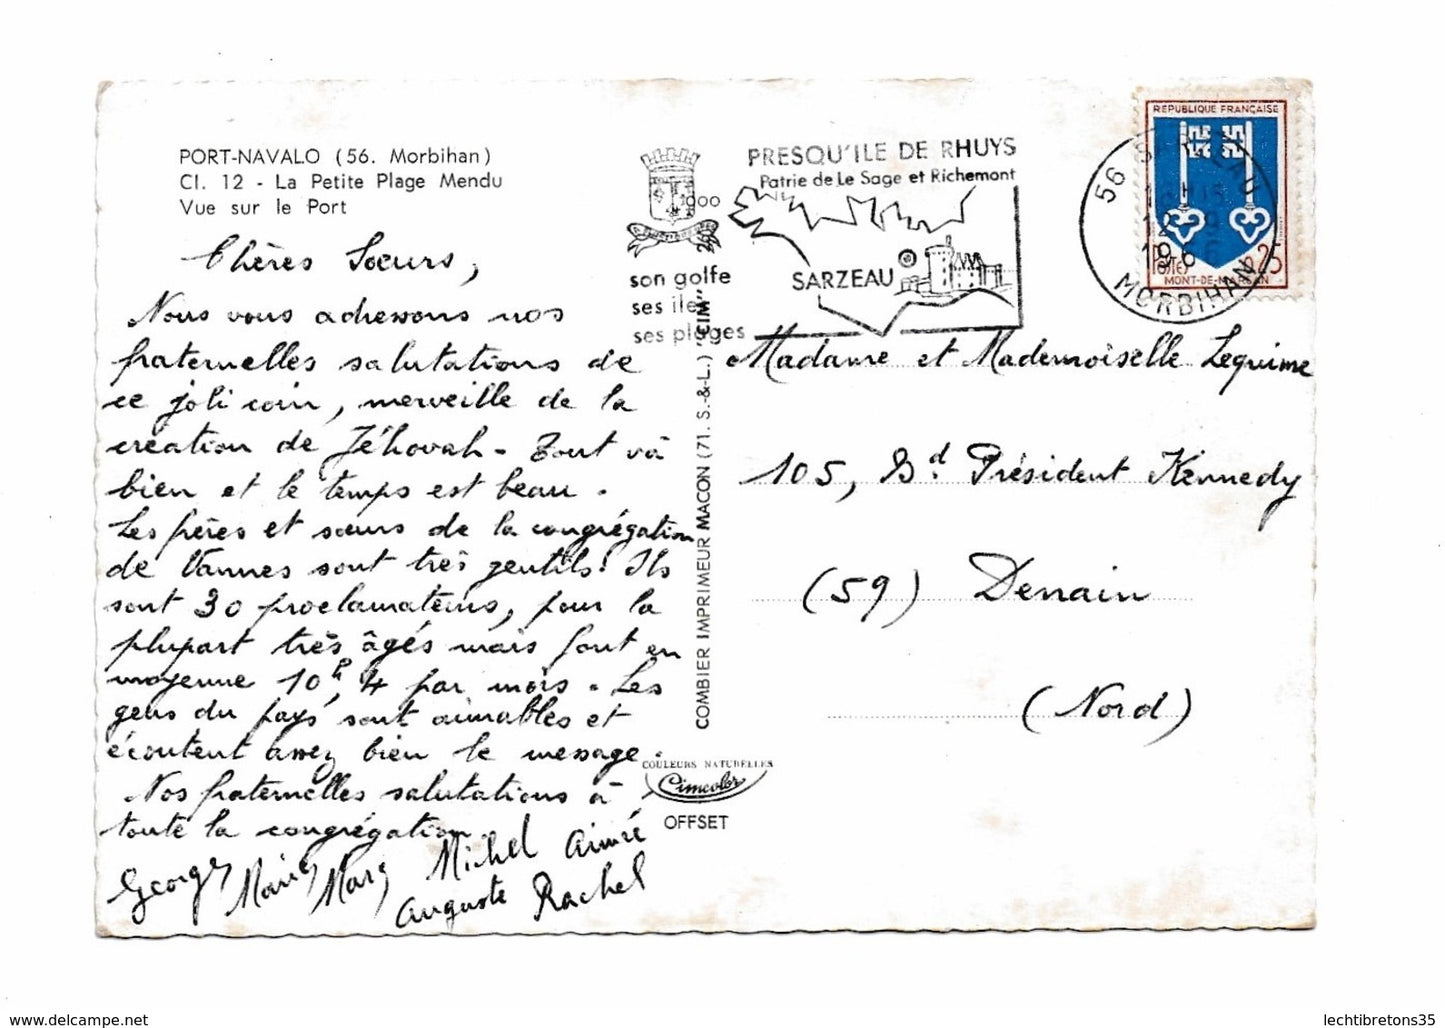 PORT-NAVALO (56. Morbihan)
Cl. 12 - La Petite Plage Mendu
Vue sur le Port
Chères Sœurs,
Nous vous adressons nos
fraternelles salutations de
ce joli coin, merveille de la
création de Jéhovah - Tout va
bien et le temps est beau.
Les frères et sœurs de la congrégation
de Vannes sont très gentils! Ils
sont 30 proclamateurs, pour la
plupart très âgés mais font en
moyenne 10h, 4 par mois. Les
gens du pays sont aimables et
écoutent assez bien le message.
Nos fraternelles salutations à
toute la congrégation
Georges Marie Marg Michel Aimée
Auguste Rachel
son golfe
ses iles
ses plages
PRESQU'ILE DE RHUYS
Patrie de Le Sage et Richemont
SARZEAU
56
MORBIHAN
REPUBLIQUE FRANÇAISE
Postes
0,25
MONT-DE-MARSAN
COMBIER IMPRIMEUR MACON (71. S.-&-L.) "CIM"
COULEURS NATURELLES
Cimcolor
OFFSET
Madame et Mademoiselle Lequime
105, Bd. Président Kennedy
(59) Denain
(Nord)
delcampe.net
lechtibretons35